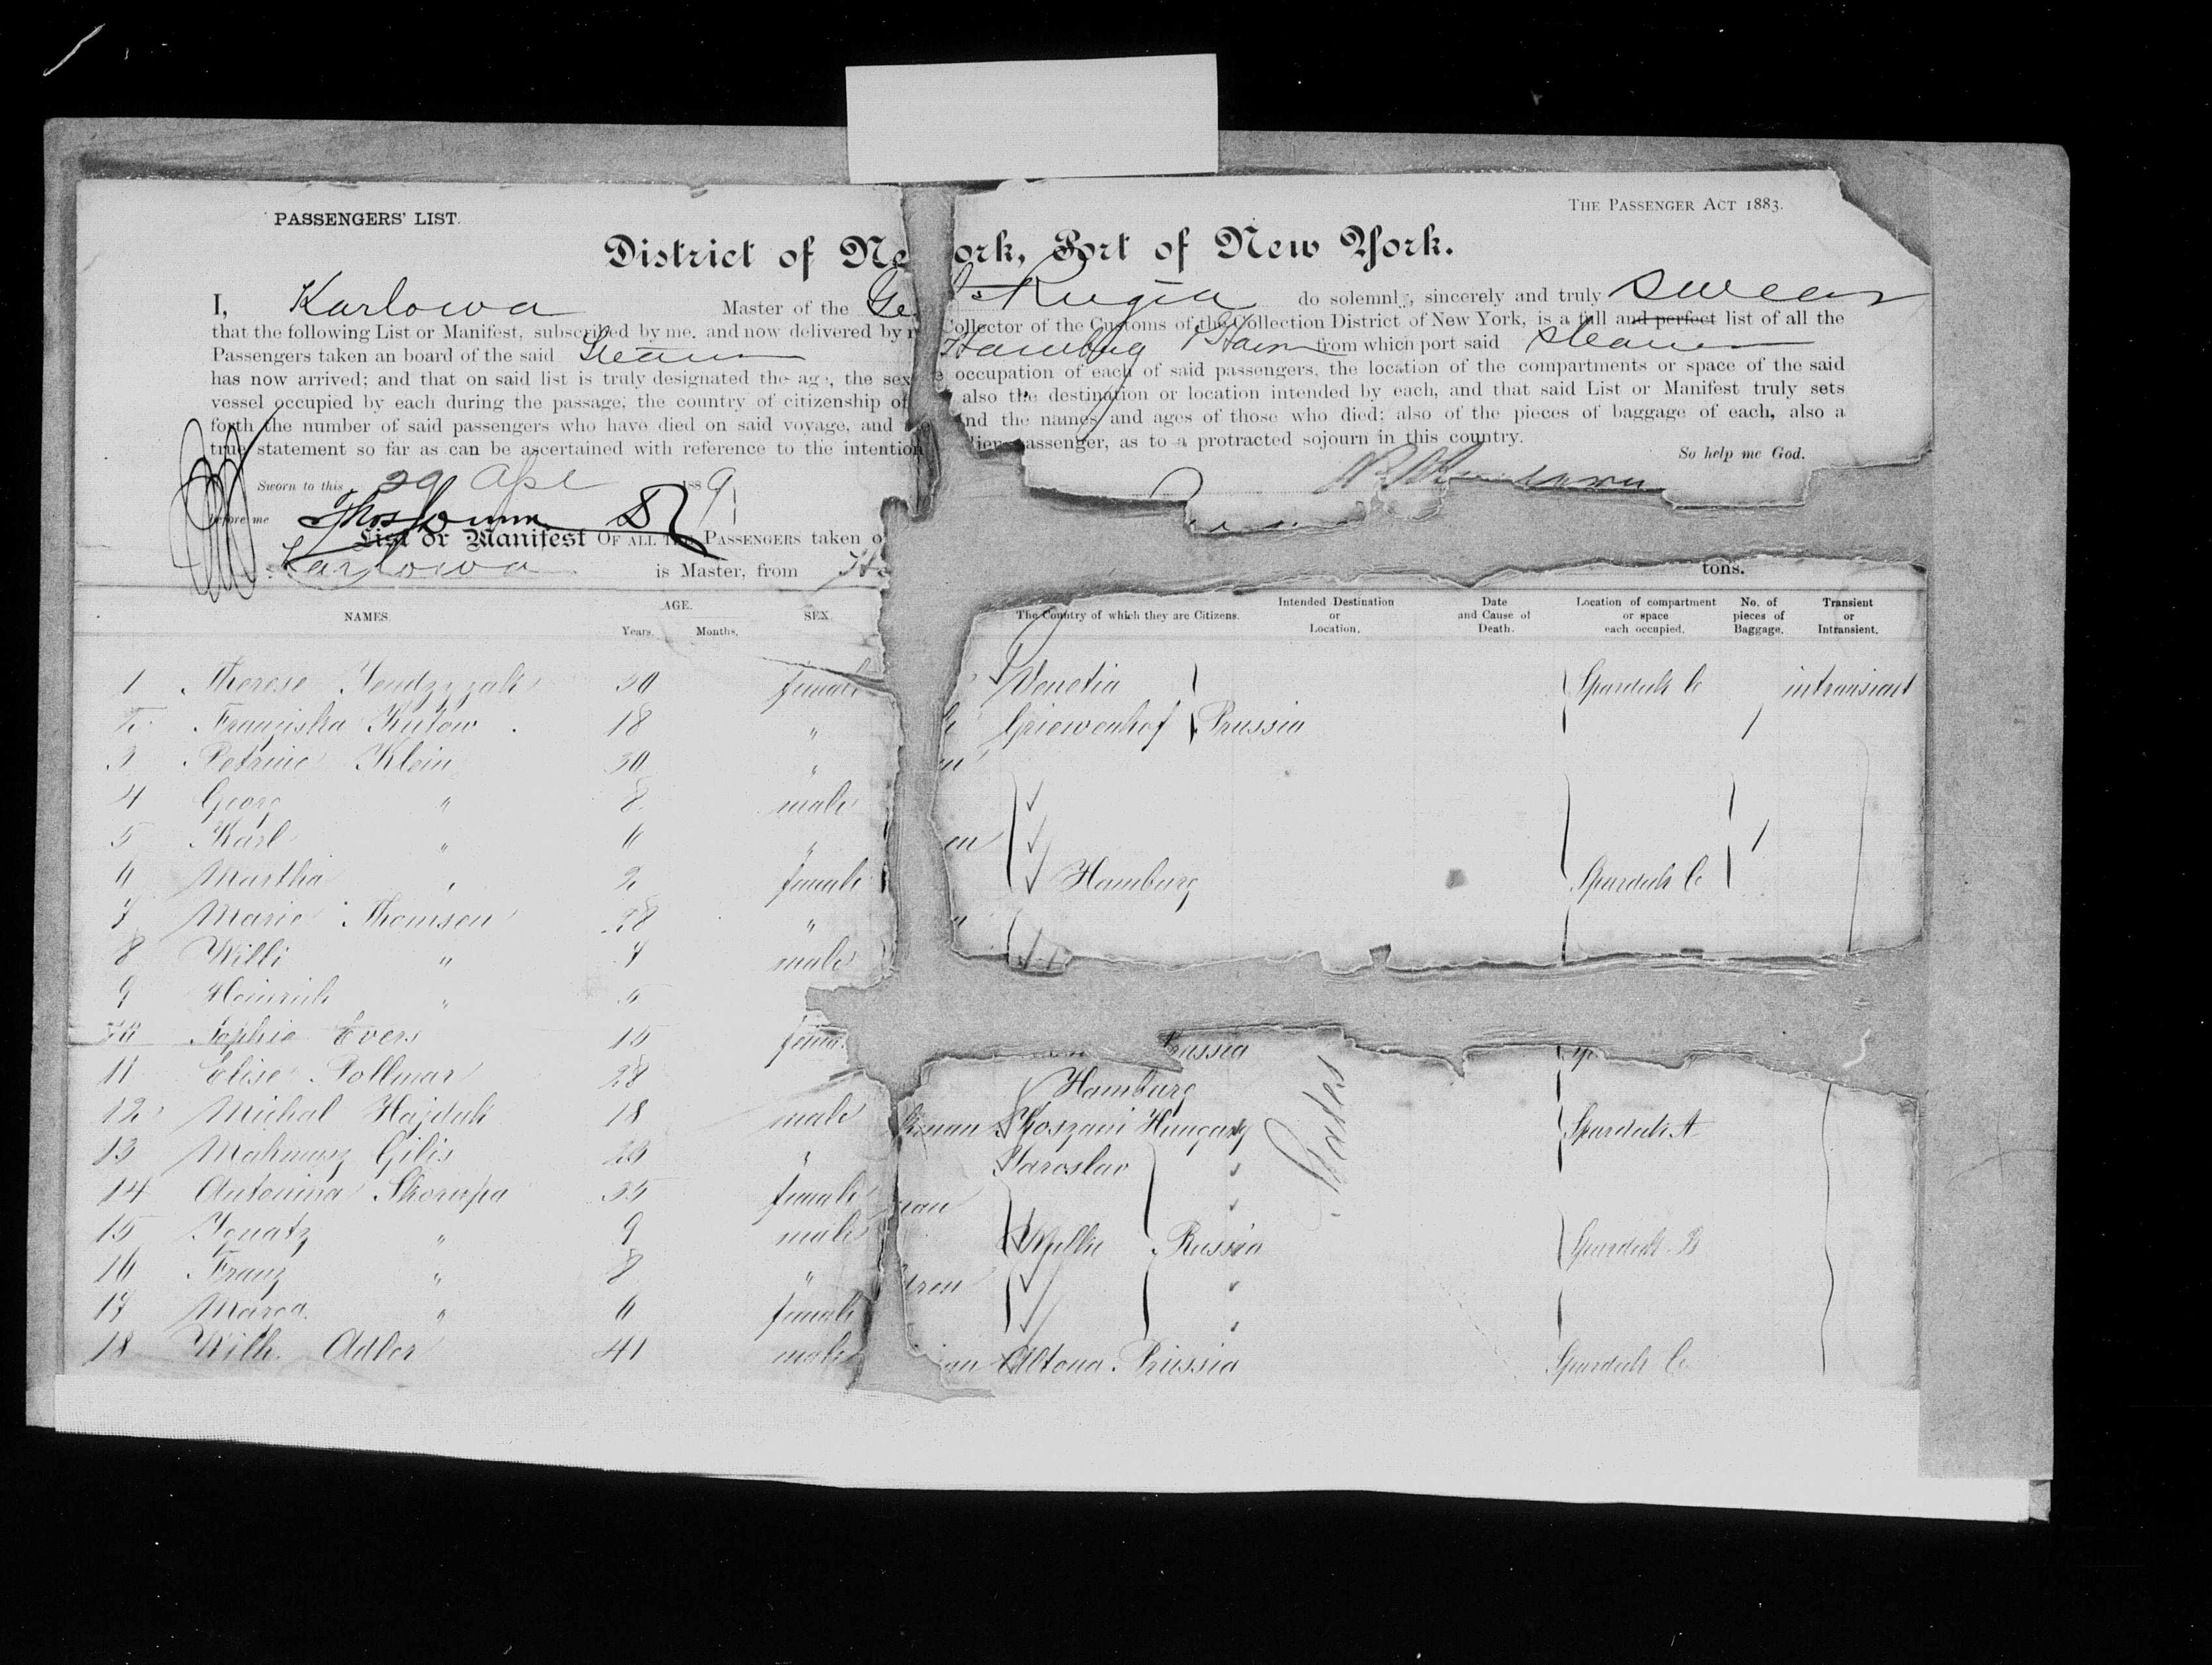 PASSENGERS' LIST.
THE PASSENGER ACT 1883.
District of Ne ork, Port of New York.
I, Karlowa Master of the Ge Rugia do solemnly, sincerely and truly swear
that the following List or Manifest, subscribed by me, and now delivered by Collector of the Customs of the Collection District of New York, is a full and perfect list of all the
Passengers taken an board of the said Steamer Hamburg from which port said steamer
has now arrived; and that on said list is truly designated the age, the sex occupation of each of said passengers, the location of the compartments or space of the said
vessel occupied by each during the passage; the country of citizenship of also the destination or location intended by each, and that said List or Manifest truly sets
forth the number of said passengers who have died on said voyage, and and the names and ages of those who died; also of the pieces of baggage of each, also a
true statement so far as can be ascertained with reference to the intention passenger, as to a protracted sojourn in this country.
So help me God.
Sworn to this 29 Apl 1889
before me Thos Dunn
List or Manifest OF ALL THE PASSENGERS taken o
Karlowa is Master, from Ha tons.
NAMES. AGE. Years. Months. SEX. The Country of which they are Citizens. Intended Destination or Location. Date and Cause of Death. Location of compartment or space each occupied. No. of pieces of Baggage. Transient or Intransient.
1 Therese female Venetia Spardeck C intransient
2 Franziska Kutow 18 " Griewenhof Prussia /
3 Petrine Klein 30 "
4 Georg " 8 male
5 Karl " 6 " en /
6 Martha " 2 female Hamburg Spardeck C
7 Marie Thomsen 28 " "
8 Willi " 7 male
9 Heinrich " 5
10 Sophie Evers 15 fema russia
11 Elise Pollmar 28 Hamburg
States
12 Michal Hajduk 18 male Hungary Spardeck A
13 Gilis 25 " Jaroslav "
14 Antonina Skorupa 35 female man "
15 Ignatz " 9 male Russia Spardeck B
16 Franz " 8 " dren "
17 Marga " 6 female "
18 Wilh. Adler 41 male an Altona. Prussia Spardeck C